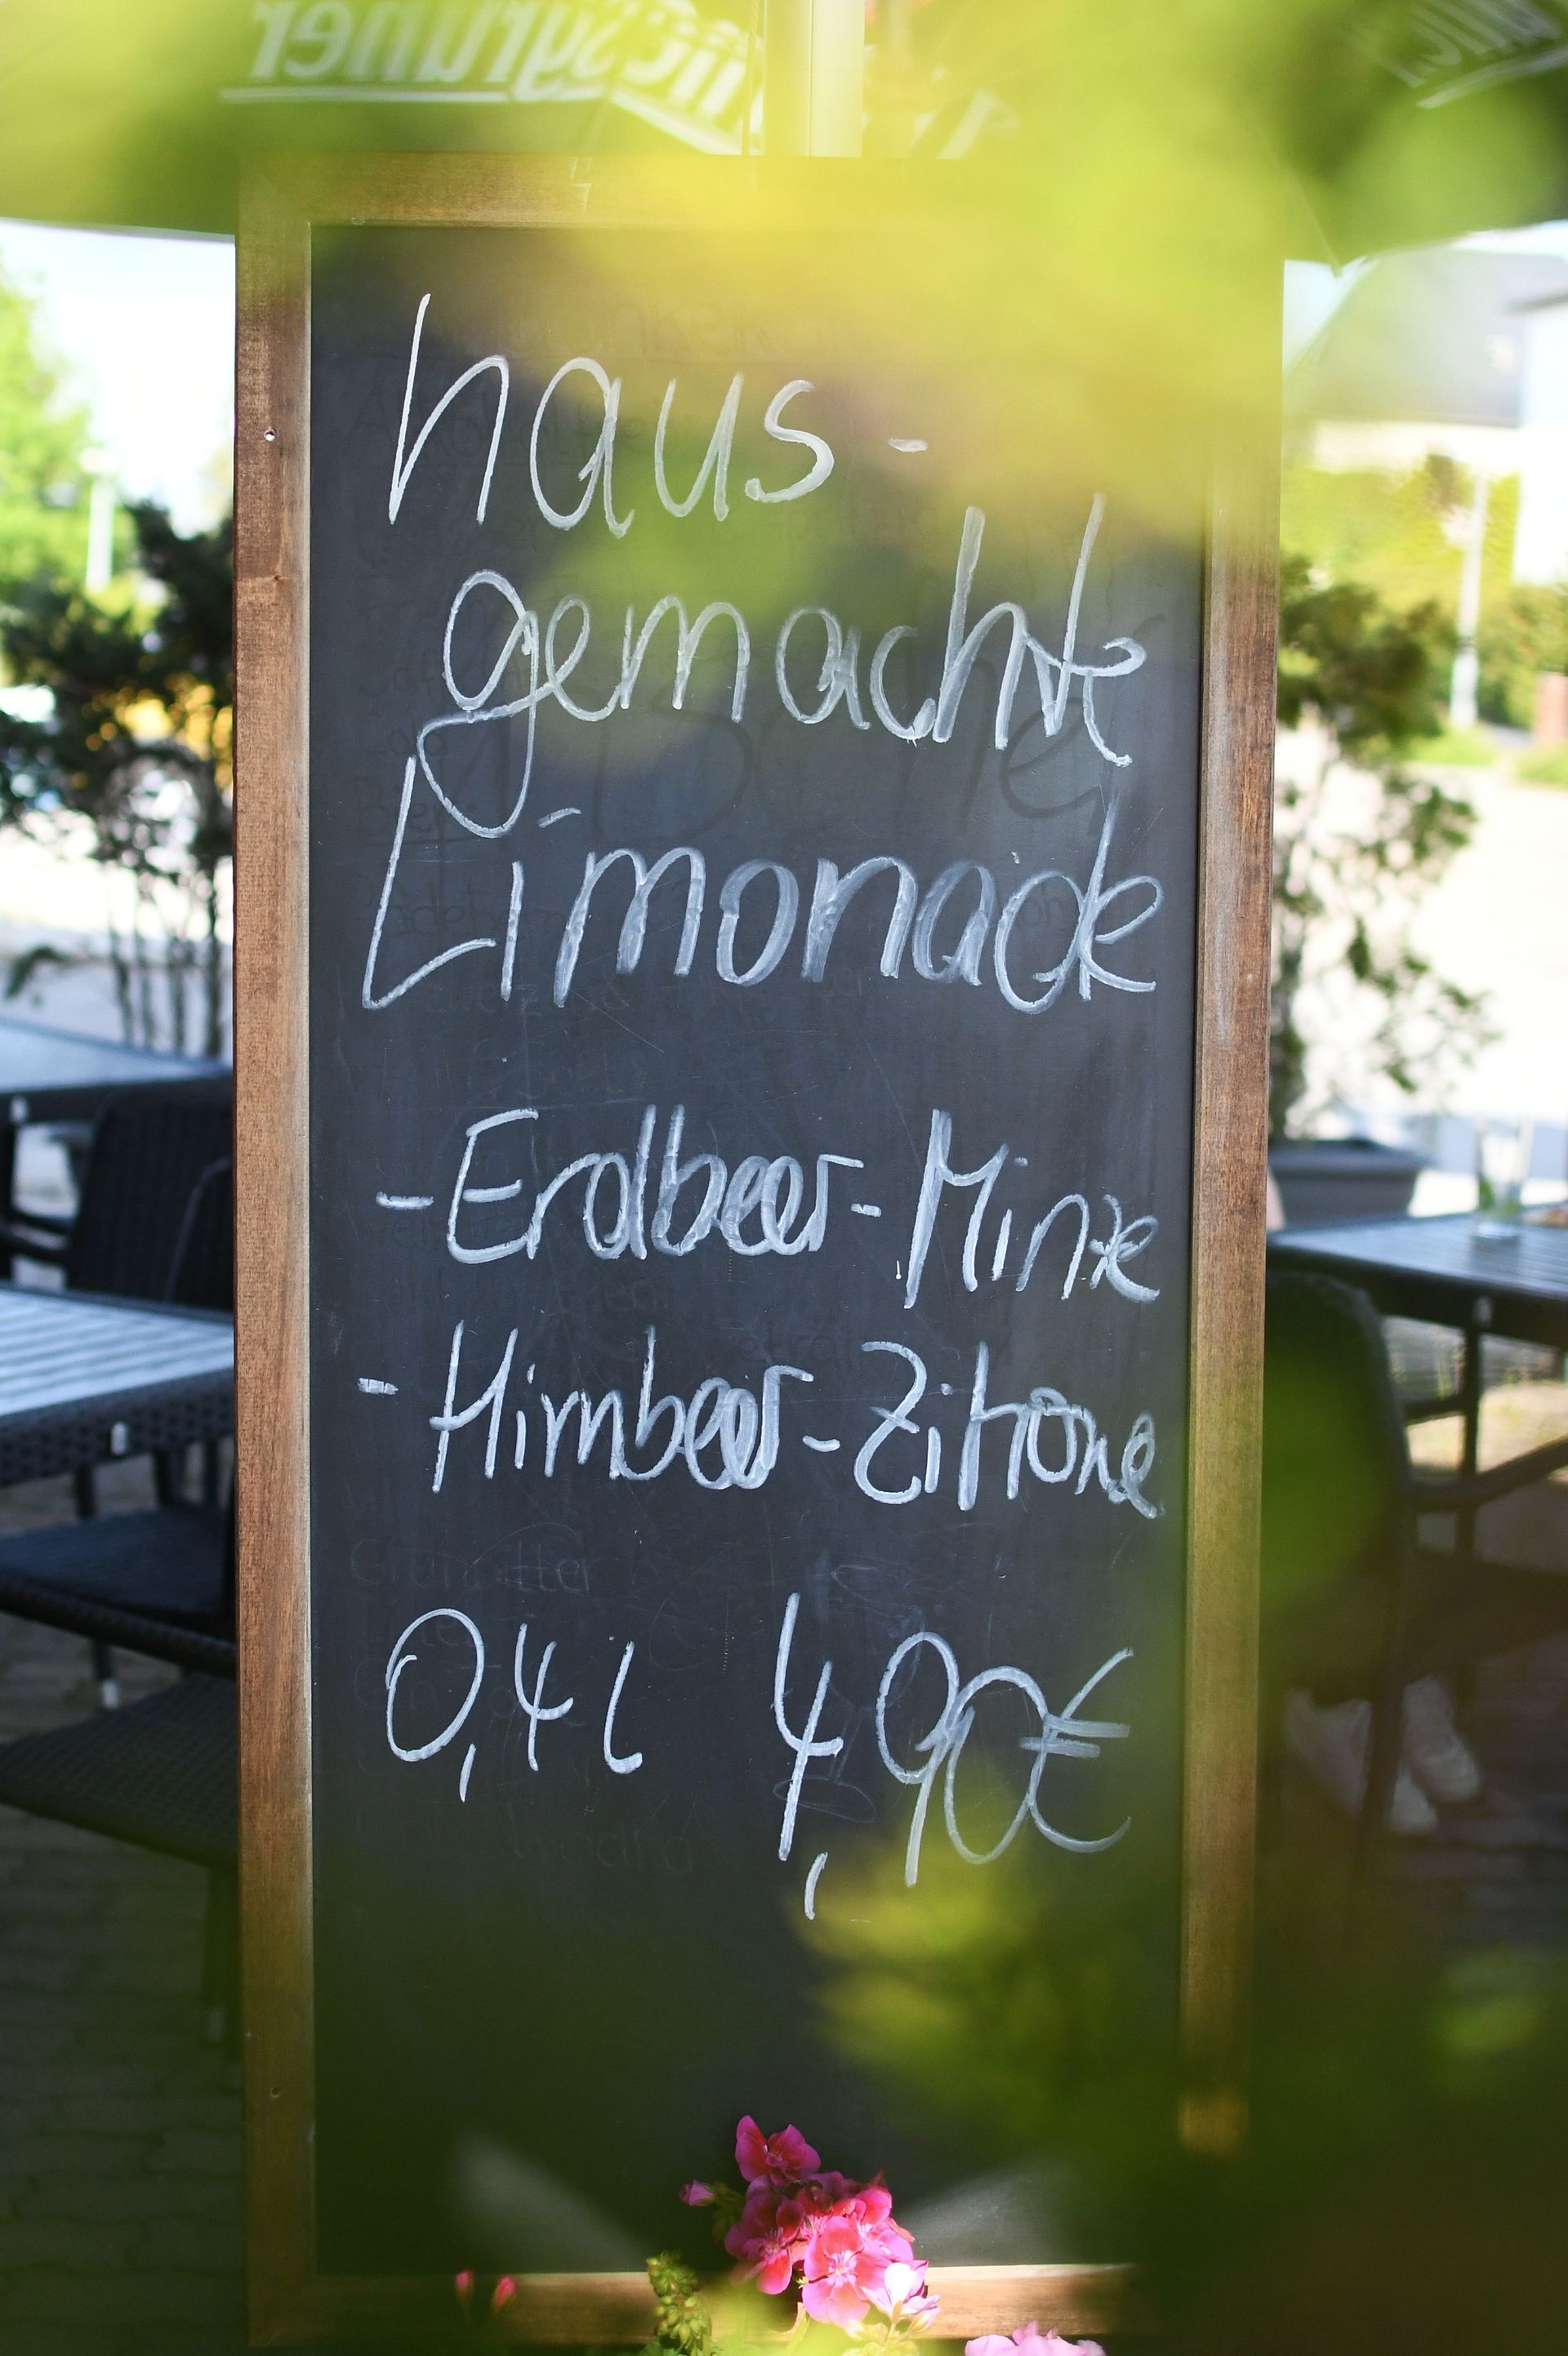 haus-
gemachte
Limonade
-Erdbeer-Minze
-Himbeer-Zitrone
0,4l 4,90€